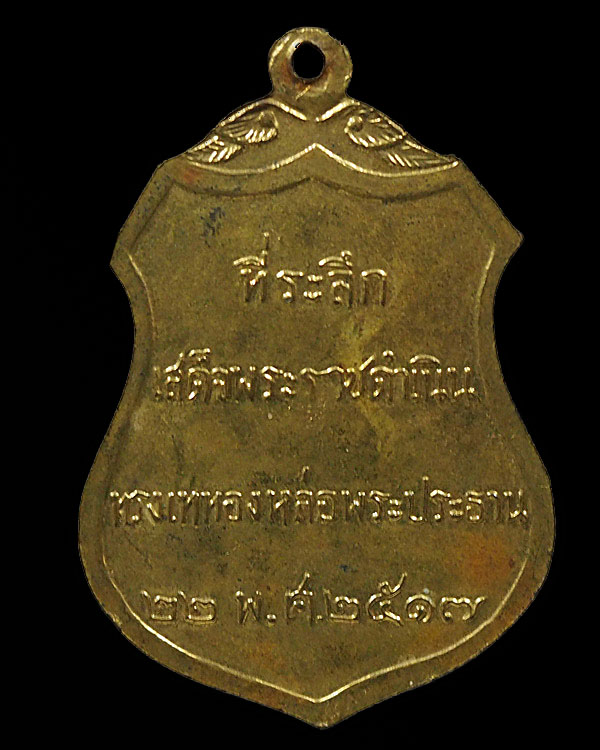 ที่ระลึก
เสด็จพระราชดำเนิน
ทรงเททองหล่อพระประธาน
๒๒ พ.ศ.๒๕๑๗